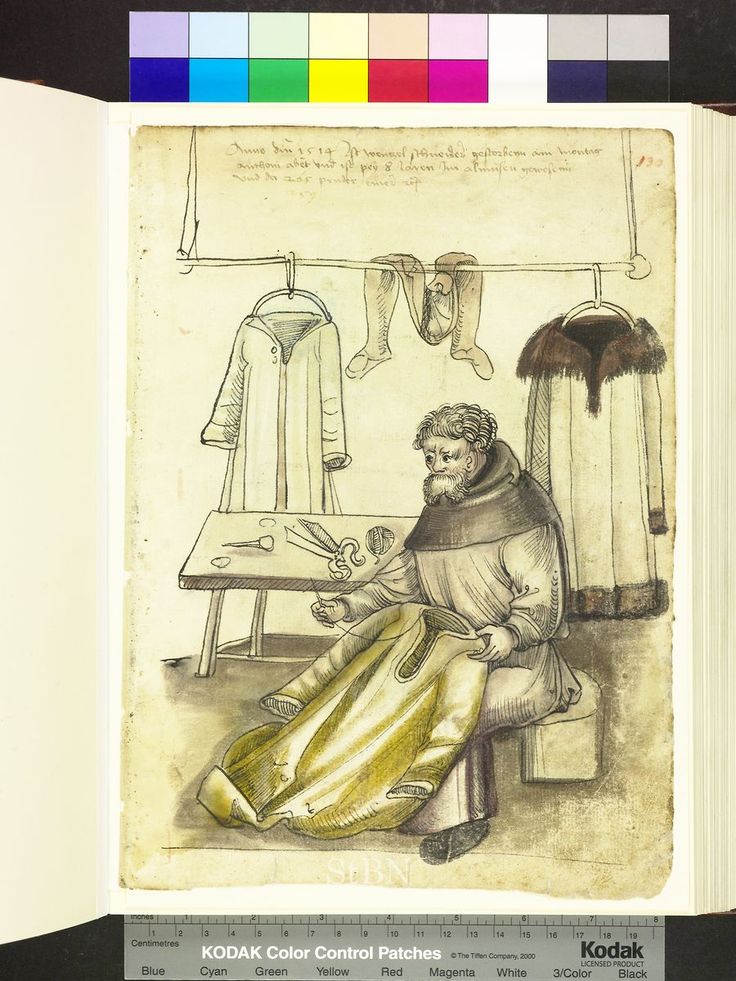 Anno dm̄ 1514 Ist wentzel schneider gestorbenn am montag
anthoni abet vnd ist pey 8 Jaren Im almusen gewesenn
vnd der 205 pruder
130
StBN
Inches 1 2 3 4 5 6 7 8
Centimetres 1 2 3 4 5 6 7 8 9 10 11 12 13 14 15 16 17 18 19
KODAK Color Control Patches © The Tiffen Company, 2000 Kodak
LICENSED PRODUCT
Blue Cyan Green Yellow Red Magenta White 3/Color Black